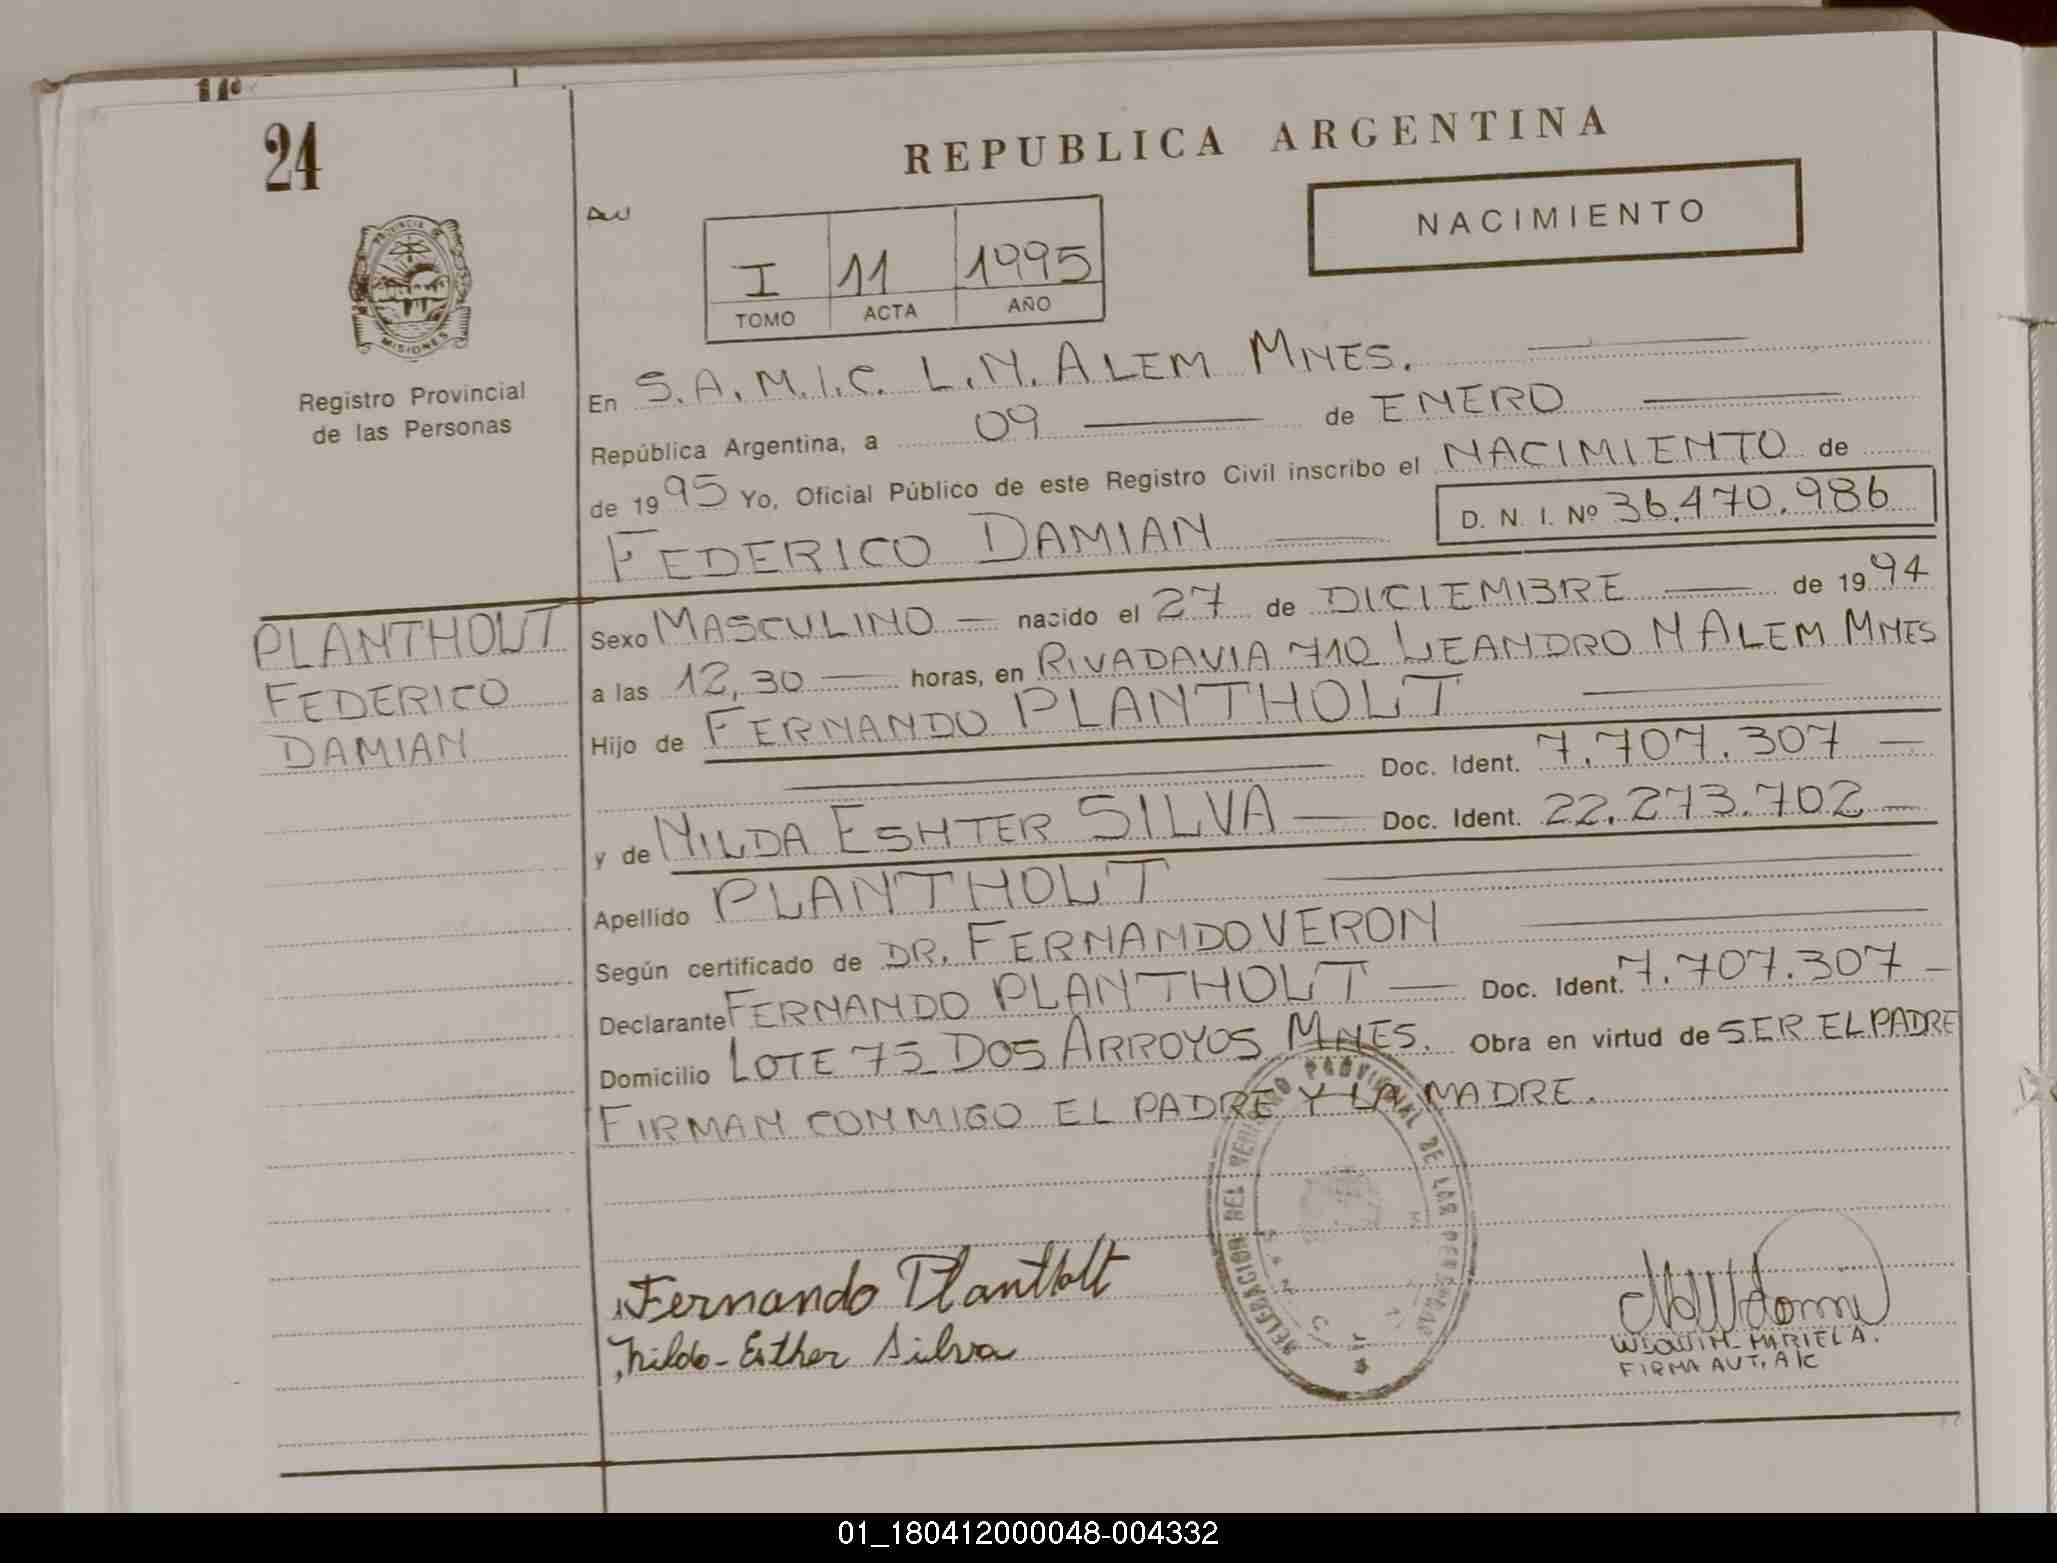 24
Registro Provincial
de las Personas
PLANTHOLT
FEDERICO
DAMIAN
REPUBLICA ARGENTINA
NACIMIENTO
I 11 1995
TOMO ACTA AÑO
En S.A.M.I.C. L.N. ALEM MNES.
República Argentina, a 09 de ENERO
de 1995 Yo, Oficial Público de este Registro Civil inscribo el NACIMIENTO de
FEDERICO DAMIAN D. N. I. Nº 36.470.986
Sexo MASCULINO nacido el 27 de DICIEMBRE de 1994
a las 12,30 horas, en RIVADAVIA 710 LEANDRO N ALEM MNES
Hijo de FERNANDO PLANTHOLT
Doc. Ident. 7.707.307
y de NILDA ESHTER SILVA Doc. Ident. 22.273.702
Apellido PLANTHOLT
Según certificado de DR. FERNANDO VERON
Declarante FERNANDO PLANTHOLT Doc. Ident. 7.707.307
Domicilio LOTE 75 DOS ARROYOS MNES. Obra en virtud de SER EL PADRE
FIRMAN CONMIGO EL PADRE Y LA MADRE.
DELEGACION DEL REGISTRO PROVINCIAL DE LAS PERSONAS
Fernando Plantholt
Nilda - Esther Silva
MARIEL A.
FIRMA AUT. A/C
PROVINCIA DE
MISIONES
01_180412000048-004332